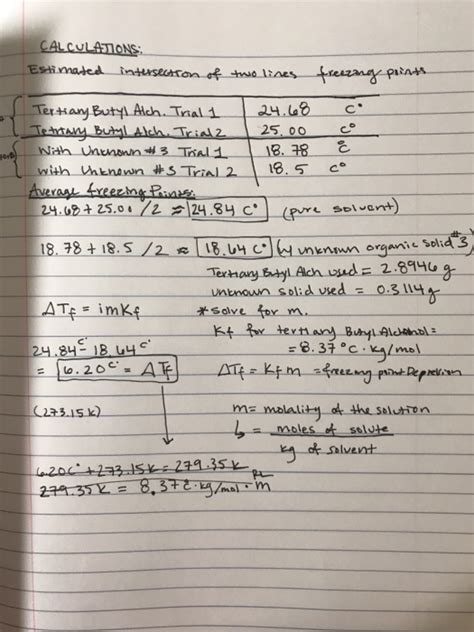 CALCULATIONS:
Estimated intersection of two lines freezing points
Tertiary Butyl Alch. Trial 1 24.68 C°
Tetriary Butyl Alch. Trial 2 25.00 C°
With Unknown #3 Trial 1 18.78 C°
with Unknown #3 Trial 2 18.5 C°
Average freezing Points:
24.68 + 25.00 /2 ≈ 24.84 C° (pure solvent)
18.78 + 18.5 /2 ≈ 18.64 C° (w/ unknown organic solid #3)
Tertiary Butyl Alch used = 2.8946 g
unknown solid used = 0.3114 g
ΔTf = imKf *solve for m.
Kf for tertiary Butyl Alcohol =
= 8.37 °C · kg/mol
24.84 C° - 18.64 C°
= 6.20 C° = ΔTf ΔTf = Kf m = freezing point Depression
(273.15 K) m = molality of the solution
= moles of solute
kg of solvent
6.20 C° + 273.15 K = 279.35 K
279.35 K = 8.37 C° · kg/mol · m